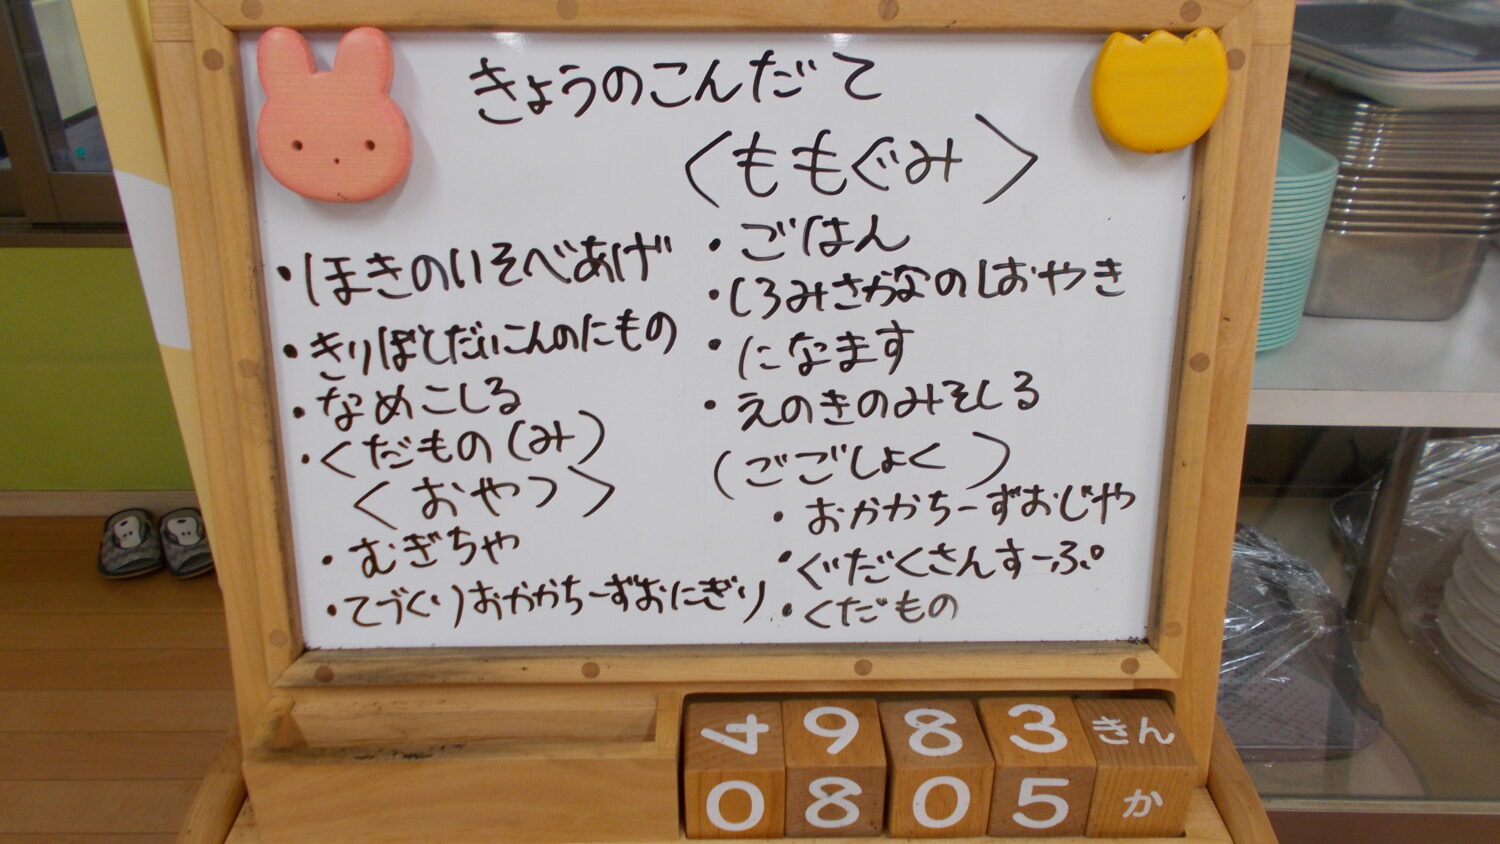 きょうのこんだて
・ほきのいそべあげ
・きりぼしだいこんのにもの
・なめこしる
・くだもの(み)
〈おやつ〉
・むぎちゃ
・てづくりおかかちーずおにぎり
〈ももぐみ〉
・ごはん
・しろみさかなのしおやき
・になます
・えのきのみそしる
(ごごしょく)
・おかかちーずおじや
・ぐだくさんすーぷ
・くだもの
4 9 8 3 きん
0 8 0 5 か